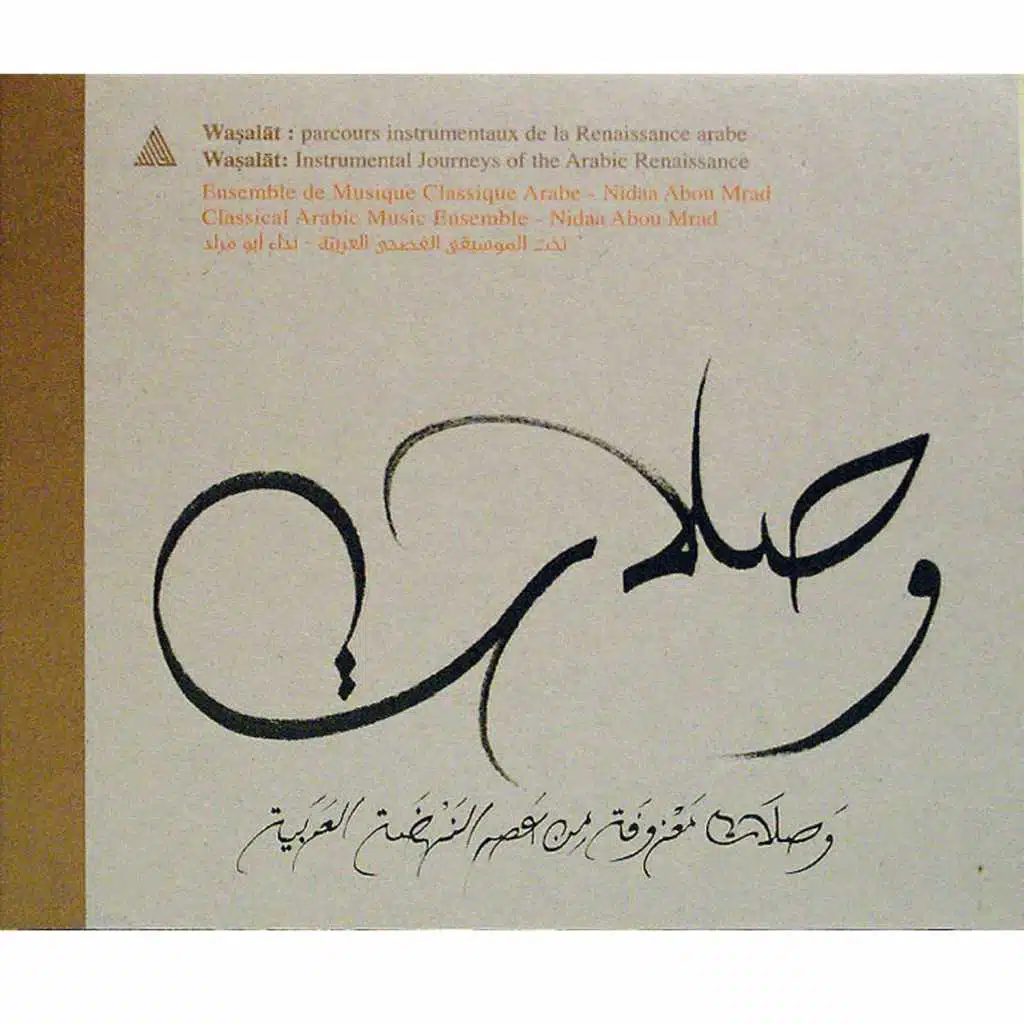 Waṣalāt : parcours instrumentaux de la Renaissance arabe
Waṣalāt: Instrumental Journeys of the Arabic Renaissance
Ensemble de Musique Classique Arabe - Nidaa Abou Mrad
Classical Arabic Music Ensemble - Nidaa Abou Mrad
تخت الموسيقى الفصحى العربيّة - نداء أبو مراد
وصلات
وَصلَات مَعْزوفَة مِن عَصر النَهْضَة العَرَبية